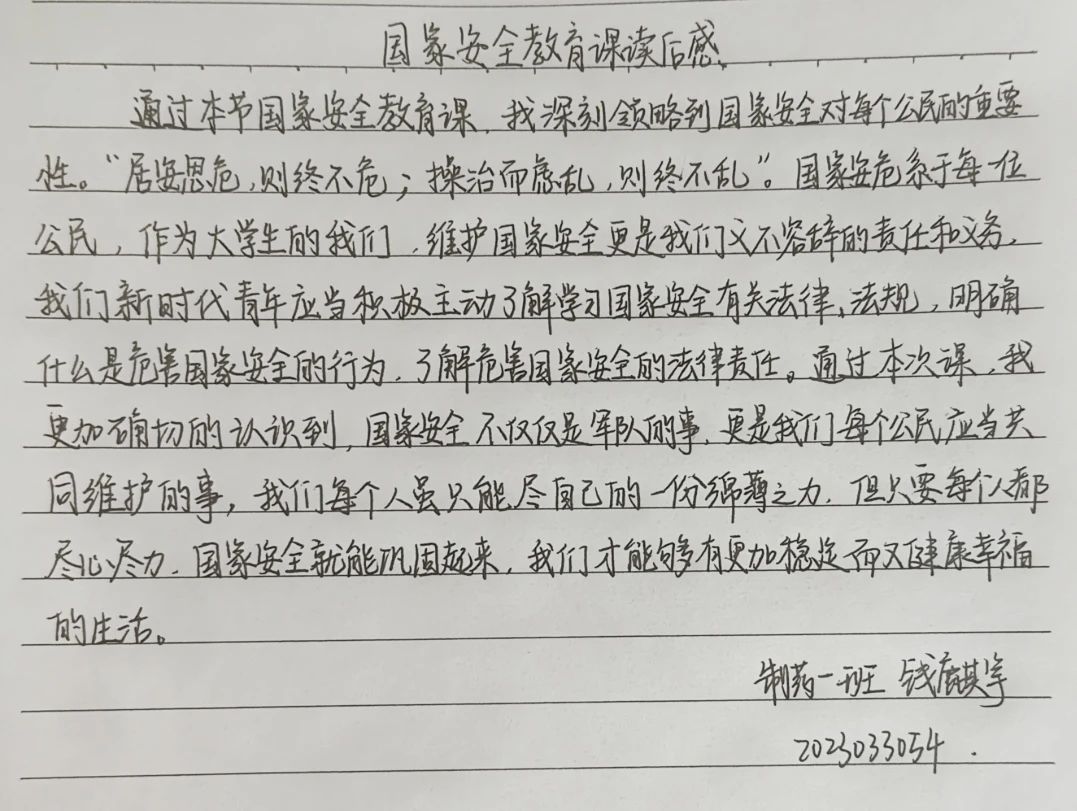 国家安全教育课读后感.
通过本节国家安全教育课,我深刻领略到国家安全对每个公民的重要
性。“居安思危,则终不危;操治而虑乱,则终不乱”。国家安危系于每一位
公民,作为大学生的我们,维护国家安全更是我们义不容辞的责任和义务.
我们新时代青年应当积极主动了解学习国家安全有关法律、法规,明确
什么是危害国家安全的行为,了解危害国家安全的法律责任。通过本次课,我
更加确切的认识到,国家安全不仅仅是军队的事,更是我们每个公民应当共
同维护的事,我们每个人虽只能尽自己的一份绵薄之力,但只要每个人都
尽心尽力,国家安全就能巩固起来,我们才能够有更加稳定而又健康幸福
的生活。
制药一班 钱麒宇
2023033054.